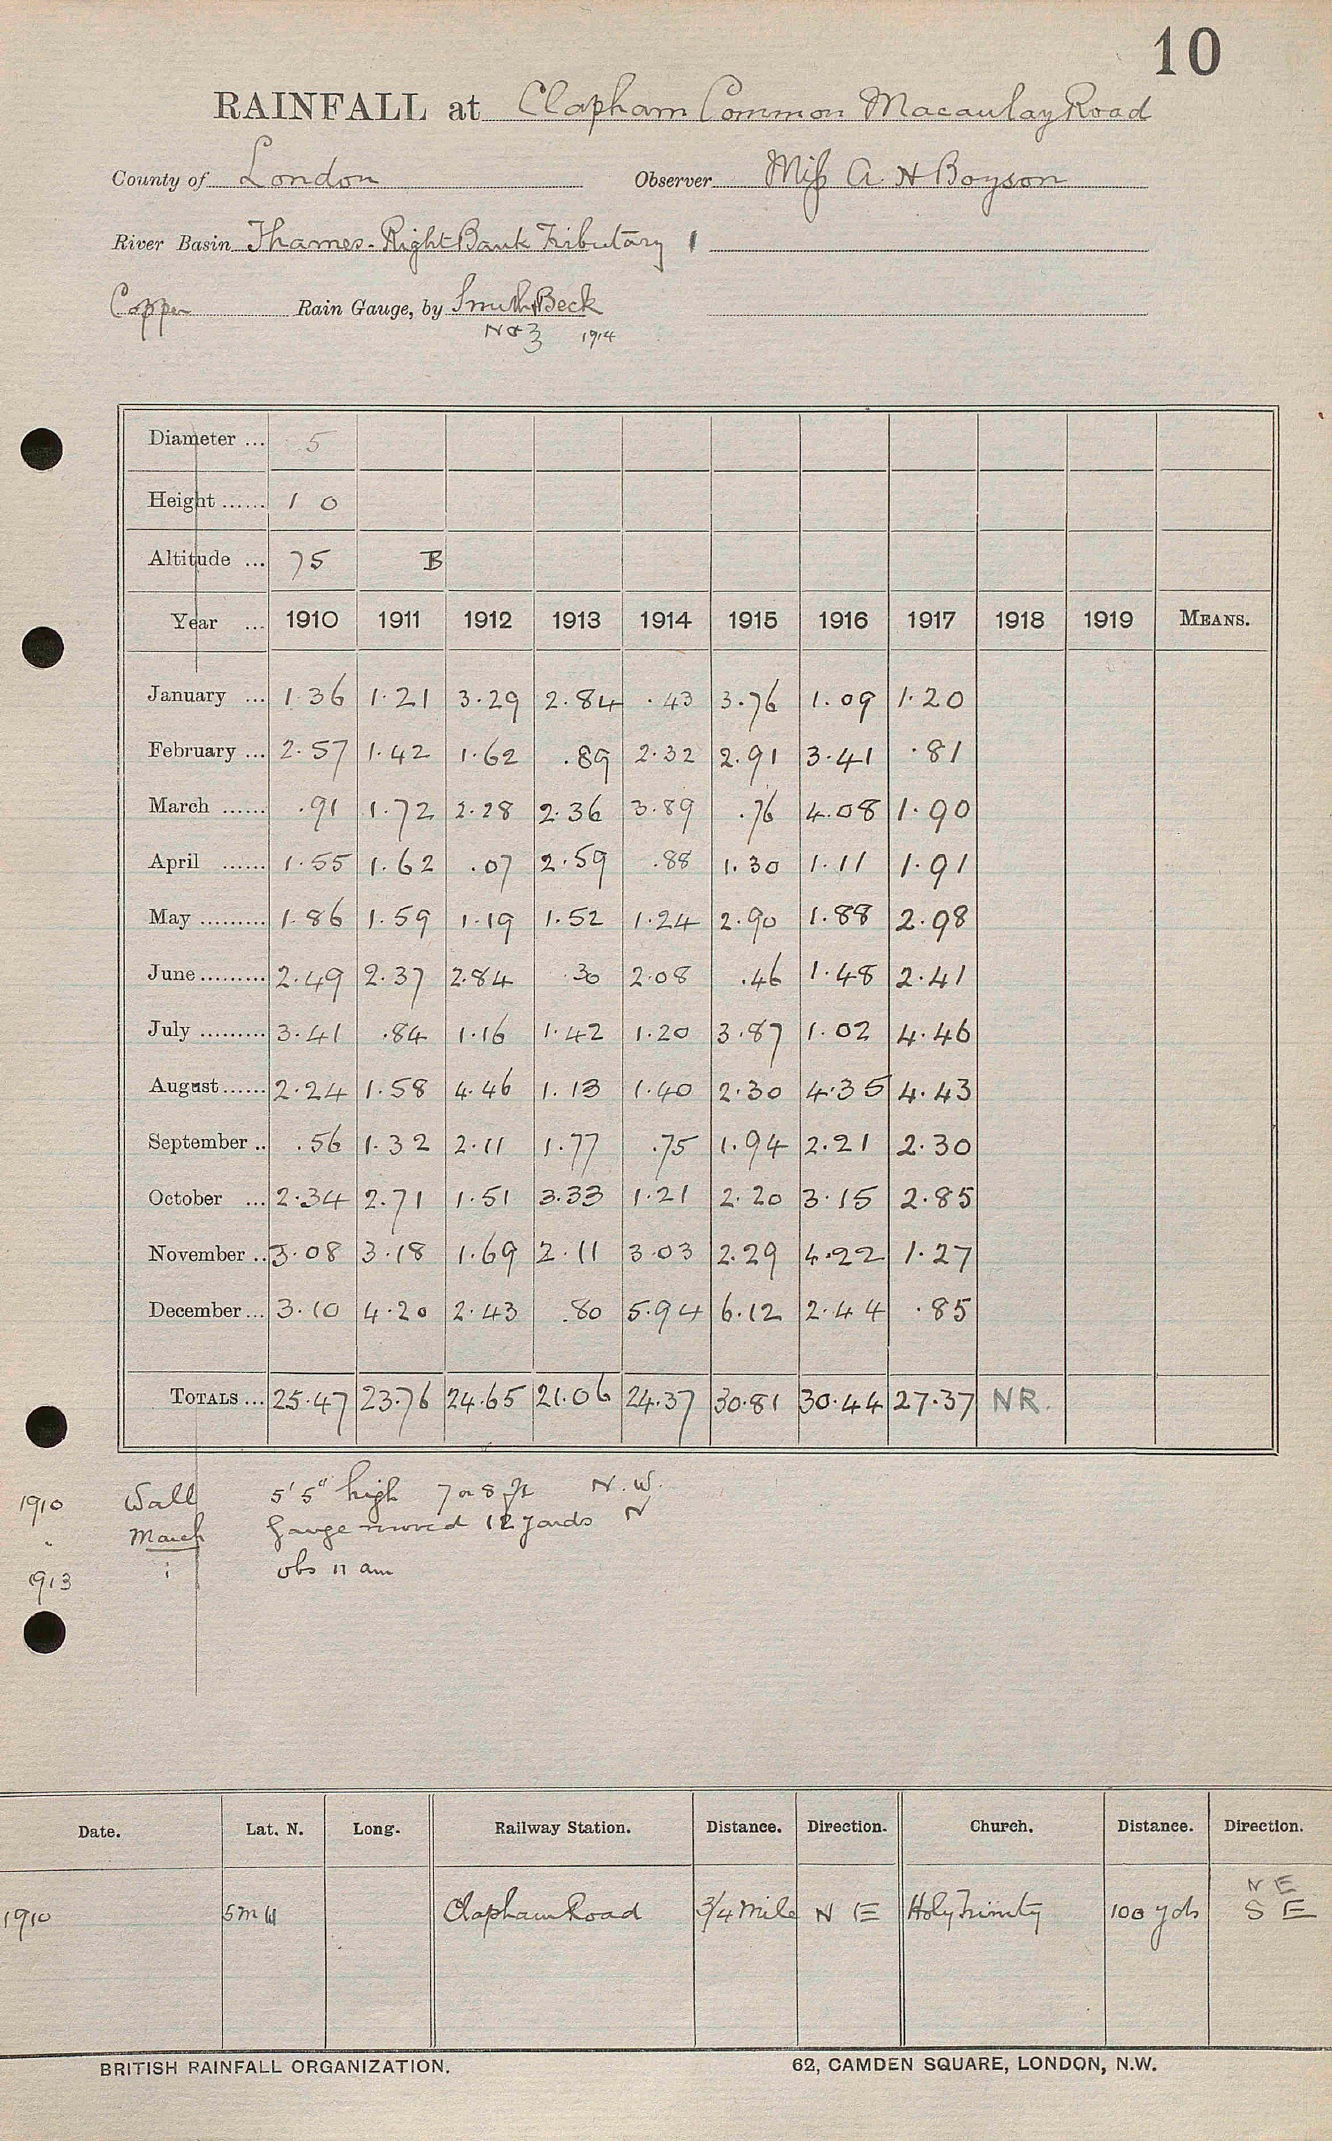 10
RAINFALL at Clapham Common Macaulay Road
County of London Observer Miss A H Boyson
River Basin Thames - Right Bank Tributary 1
Copper Rain Gauge, by Smith & Beck
No 3 1914
Diameter ... 5
Height ...... 1 0
Altitude ... 75 B
Year ... 1910 1911 1912 1913 1914 1915 1916 1917 1918 1919 MEANS.
January ... 1.36 1.21 3.29 2.84 .43 3.76 1.09 1.20
February ... 2.57 1.42 1.62 .89 2.32 2.91 3.41 .81
March ...... .91 1.72 2.28 2.36 3.89 .76 4.08 1.90
April ...... 1.55 1.62 .07 2.59 .88 1.30 1.11 1.91
May ......... 1.86 1.59 1.19 1.52 1.24 2.90 1.88 2.98
June ......... 2.49 2.37 2.84 .30 2.08 .46 1.48 2.41
July ......... 3.41 .84 1.16 1.42 1.20 3.87 1.02 4.46
August ...... 2.24 1.58 4.46 1.13 1.40 2.30 4.35 4.43
September .. .56 1.32 2.11 1.77 .75 1.94 2.21 2.30
October ... 2.34 2.71 1.51 3.33 1.21 2.20 3.15 2.85
November .. 3.08 3.18 1.69 2.11 3.03 2.29 4.22 1.27
December ... 3.10 4.20 2.43 .80 5.94 6.12 2.44 .85
TOTALS ... 25.47 23.76 24.65 21.06 24.37 30.81 30.44 27.37 NR.
1910 Wall 5' 5" high 7 or 8 ft N.W.
" March Gauge moved 12 yards N
1913 obs 11 am
Date. Lat. N. Long. Railway Station. Distance. Direction. Church. Distance. Direction.
N E
1910 5m W Clapham Road 3/4 Mile N E Holy Trinity 100 yds S E
BRITISH RAINFALL ORGANIZATION. 62, CAMDEN SQUARE, LONDON, N.W.